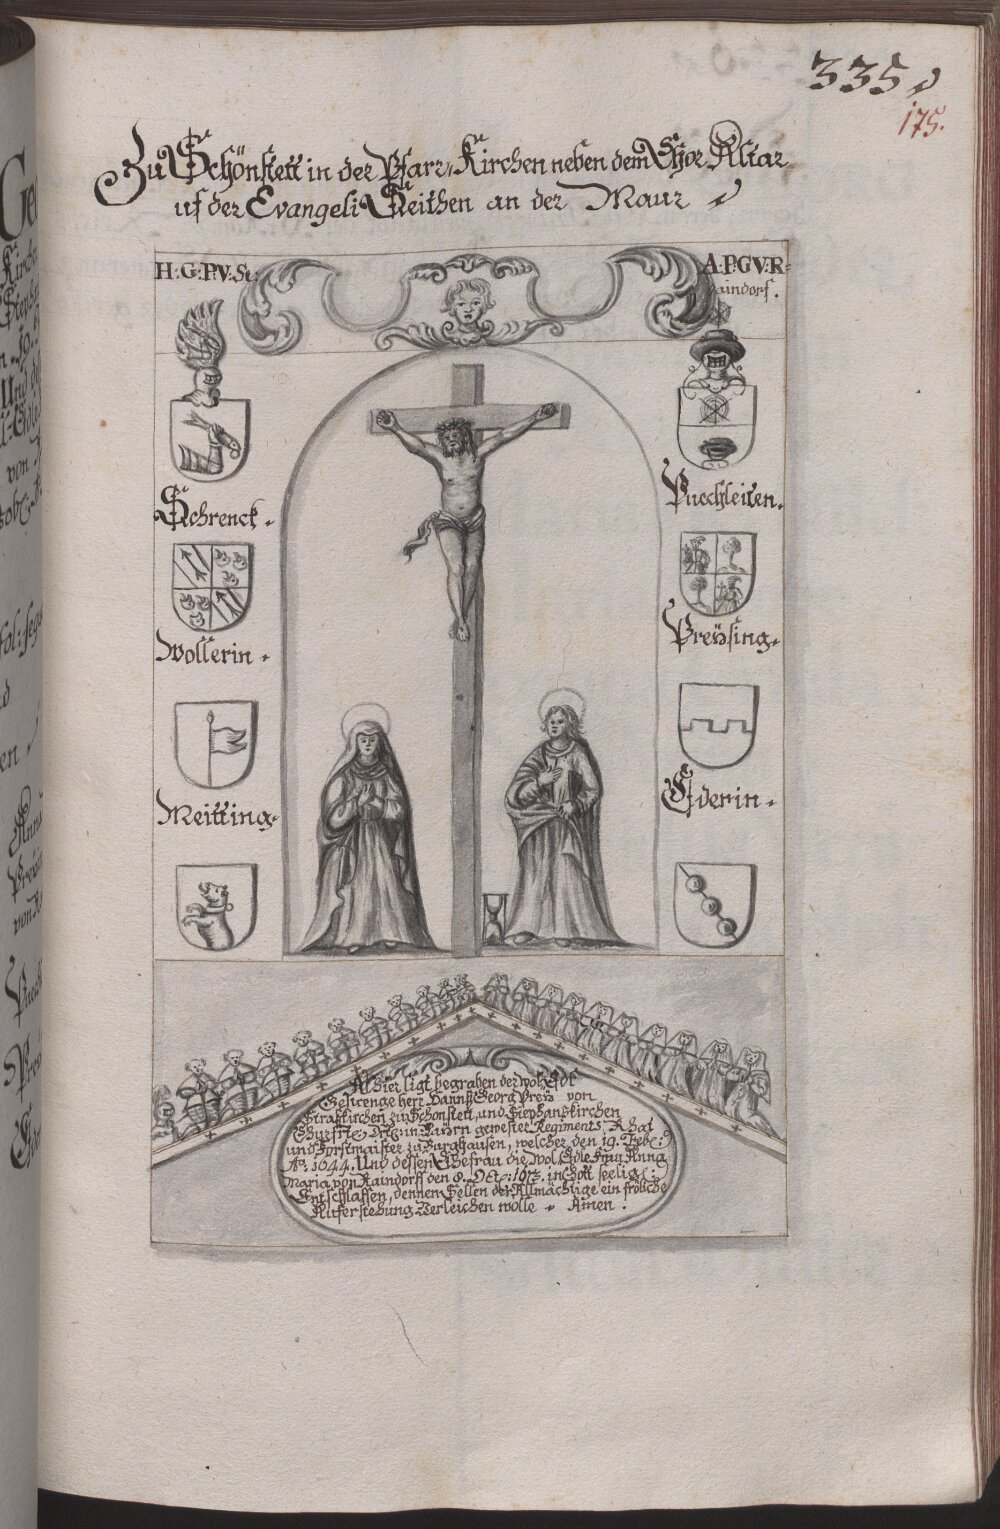 335
175.
Zu Schönstett in der Pfarr, Kirchen neben dem Chor Altar
uf der Evangeli Seithen an der Maur
H:G:P:V:St:
A:P:G:V:R:
aindorf.
Schrenck.
Puechleiten.
Wollerin.
Preÿsing.
Meitting.
Ederin.
Alhier ligt begraben der wohl Edl
Gestrenge herr Hannß Georg Preÿ von
Straßkirchen zu Schönstett, und Stephanskirchen
Churfrt: Drt: in Baÿrn gewester Regiments Rhat
und Forstmaister zu Burghausen, welcher den 19. Febr:
Ao: 1644. Und dessen Ehefrau die Wol Edle Frau Anna
Maria von Raindorff den 8. Oct: 1673. in Gott seelig:
Entschlaffen, dennen Sellen der Allmächtige ein fröliche
Auferstehung Verleichen wolle. Amen.